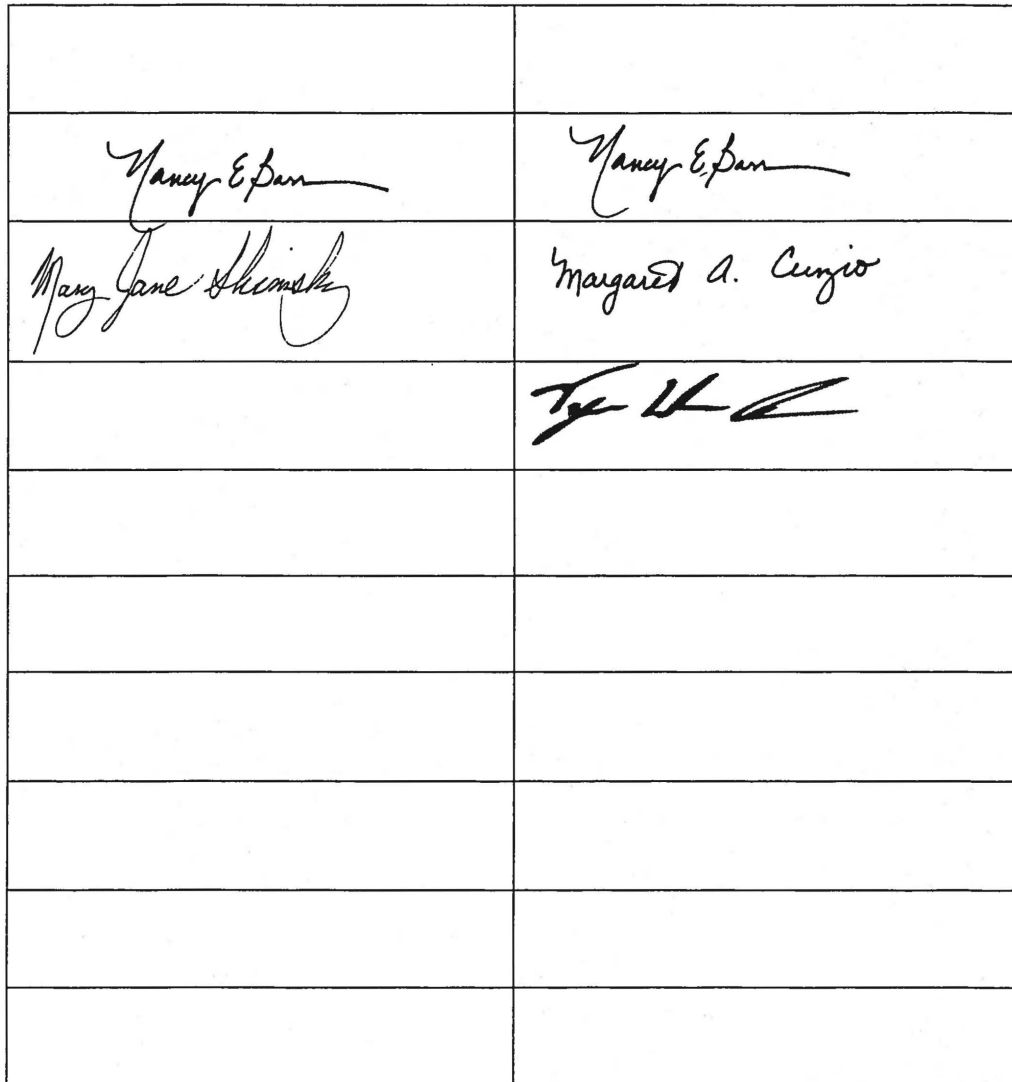 Nancy E. Barr Nancy E. Barr
Mary Jane Shimsky Margaret A. Cunzio